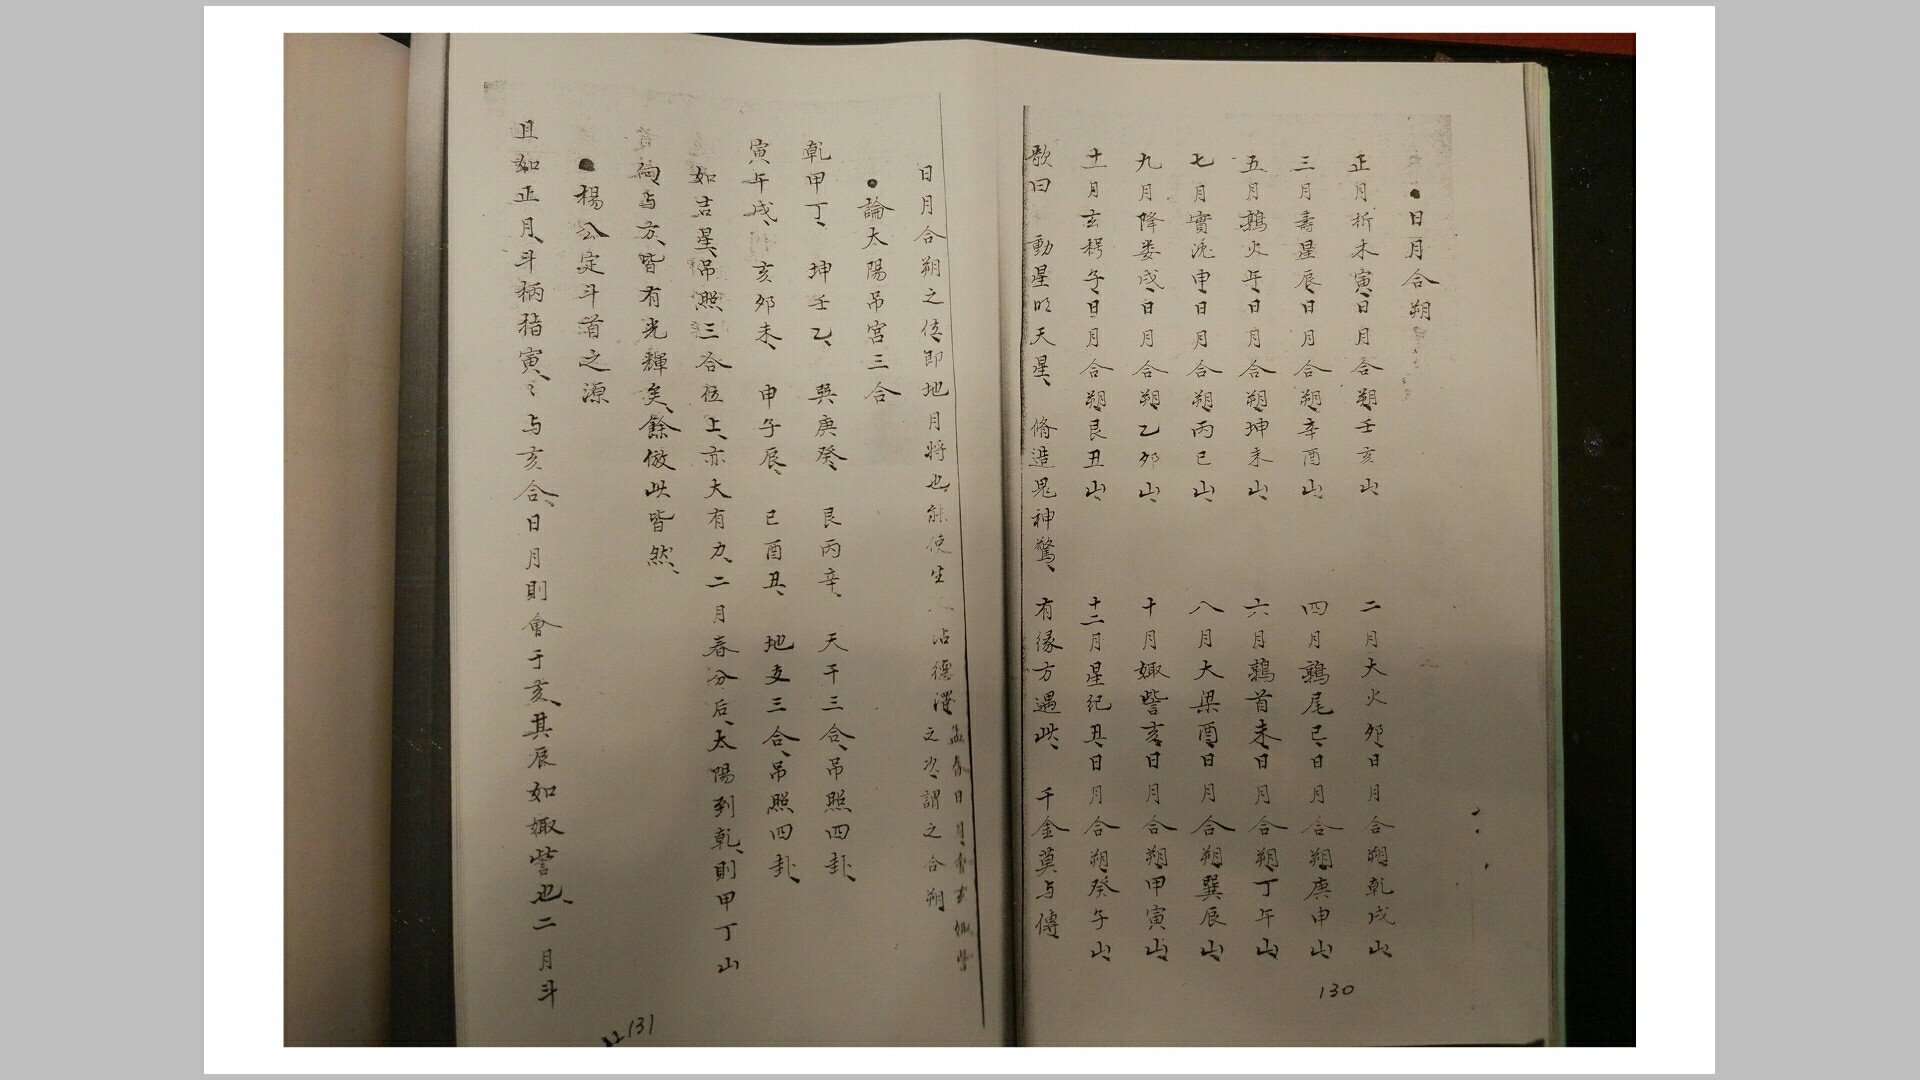 ●日月合朔
正月析木寅、日月合朔、壬亥山、 二月大火卯、日月合朔乾戌山、
三月壽星辰、日月合朔、辛酉山、 四月鶉尾巳、日月合朔、庚申山、
五月鶉火午、日月合朔、坤未山、 六月鶉首未、日月合朔、丁午山、
七月實沈申、日月合朔、丙巳山、 八月大梁酉、日月合朔、巽辰山、
九月降娄戌、日月合朔、乙卯山、 十月娵訾亥、日月合朔、甲寅山、
十一月玄枵子、日月合朔、艮丑山、 十二月星纪丑、日月合朔、癸子山、
歌曰 動星明天星、 脩造鬼神驚、 有缘方遇此、 千金莫与傳
130
日月合朔之位、即地月將也、能使生人沾德澤之次、謂之合朔
孟春日月會
●論太陽吊宮三合
乾甲丁、 坤壬乙、 巽庚癸、 艮丙辛、 天干三合、吊照四卦、
寅午戌、 亥卯未、 申子辰、 巳酉丑、 地支三合、吊照四卦、
如吉星、吊照三合位上、亦大有力、二月春分后、太陽到乾、則甲丁山
向与方、皆有光輝矣、餘倣此皆然、
●楊公定斗首之源
且如正月、斗柄指寅、〻与亥合、日月則會于亥、其辰如娵訾也、二月斗
131